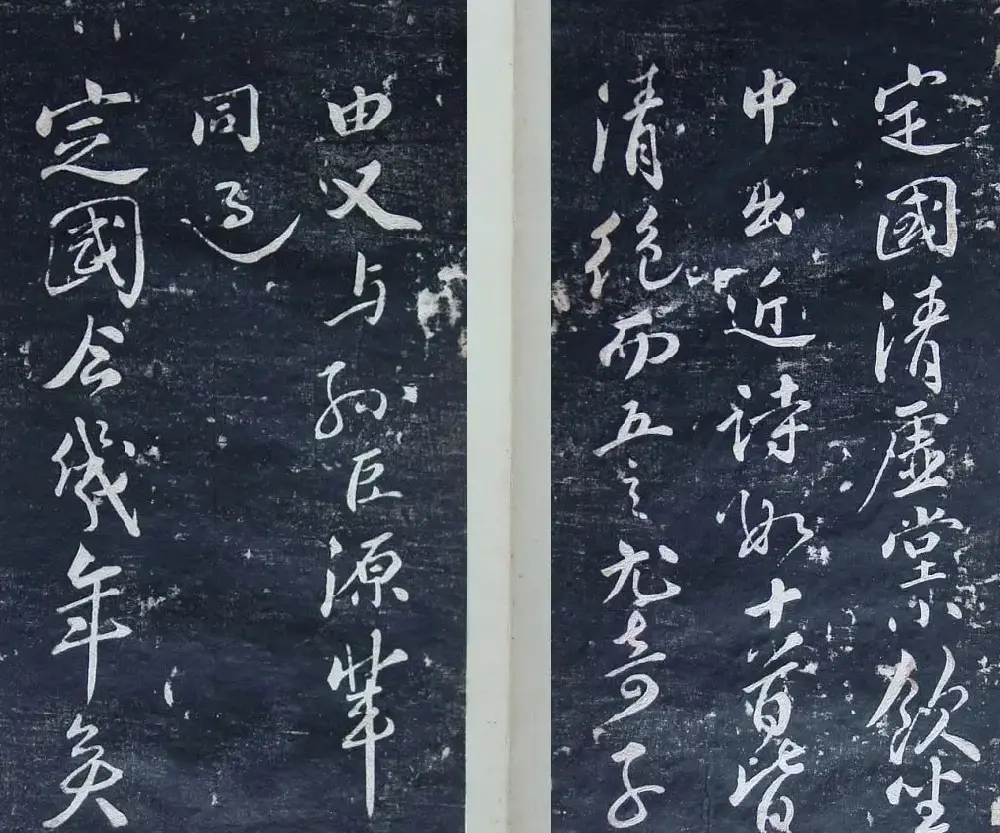 定國清虛堂飲坐
中出近詩數十首皆
清絕而五言尤奇子
由又与孫巨源輩
同過
定國今幾年矣